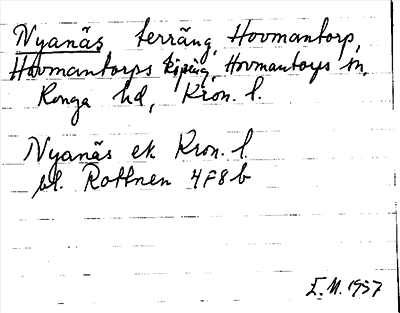 Nyanäs, terräng, Hovmantorp,
Hovmantorps köping, Hovmantorps sn,
Konga hd, Kron. l.
Nyanäs ek Kron. l.
bl. Rottnen 4F8b
E.M. 1957